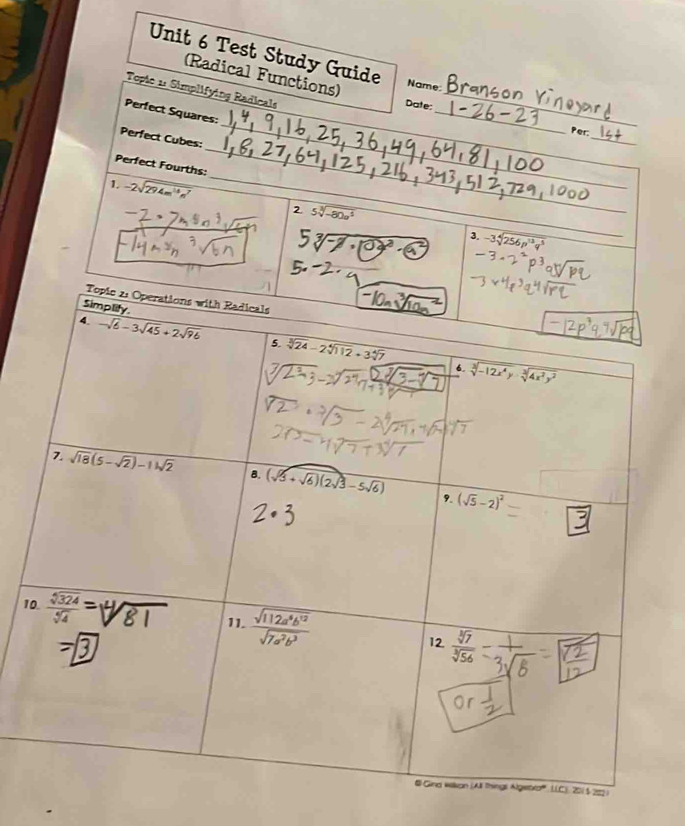 Unit 6 Test Study Guide
(Radical Functions)
Name: Branson Vinoyard
Date: 1-26-23
Per: 1st
Topic 1: Simplifying Radicals
Perfect Squares: 1, 4, 9, 16, 25, 36, 49, 64, 81, 100
Perfect Cubes: 1, 8, 27, 64, 125, 216, 343, 512, 729, 1000
Perfect Fourths:
1. -2√294m¹⁶n⁷
-14m⁸n³√6n
2. 5∛-80n⁵
5·-2·
-10n∛10n²
3. -3∜256p¹³q⁵
-3·2²p³q∜pq
-12p³q∜pq
Topic 2: Operations with Radicals
Simplify.
4. -√6 - 3√45 + 2√96
5. ∛24 - 2∜112 + 3∜7
6. ∛-12x⁴y · ∛4x²y²
7. √18(5 - √2) - 11√2
8. (√3 + √6)(2√3 - 5√6)
2·3
9. (√5 - 2)² =
3
10. ∜324/∜4 = ∜81
= 3
11. √112a⁶b¹²/√7a²b³
12. ∛7/∛56 = 1/3√8 = √2/12
or 1/2
© Gina Wilson (All Things Algebra®, LLC), 2015-2021